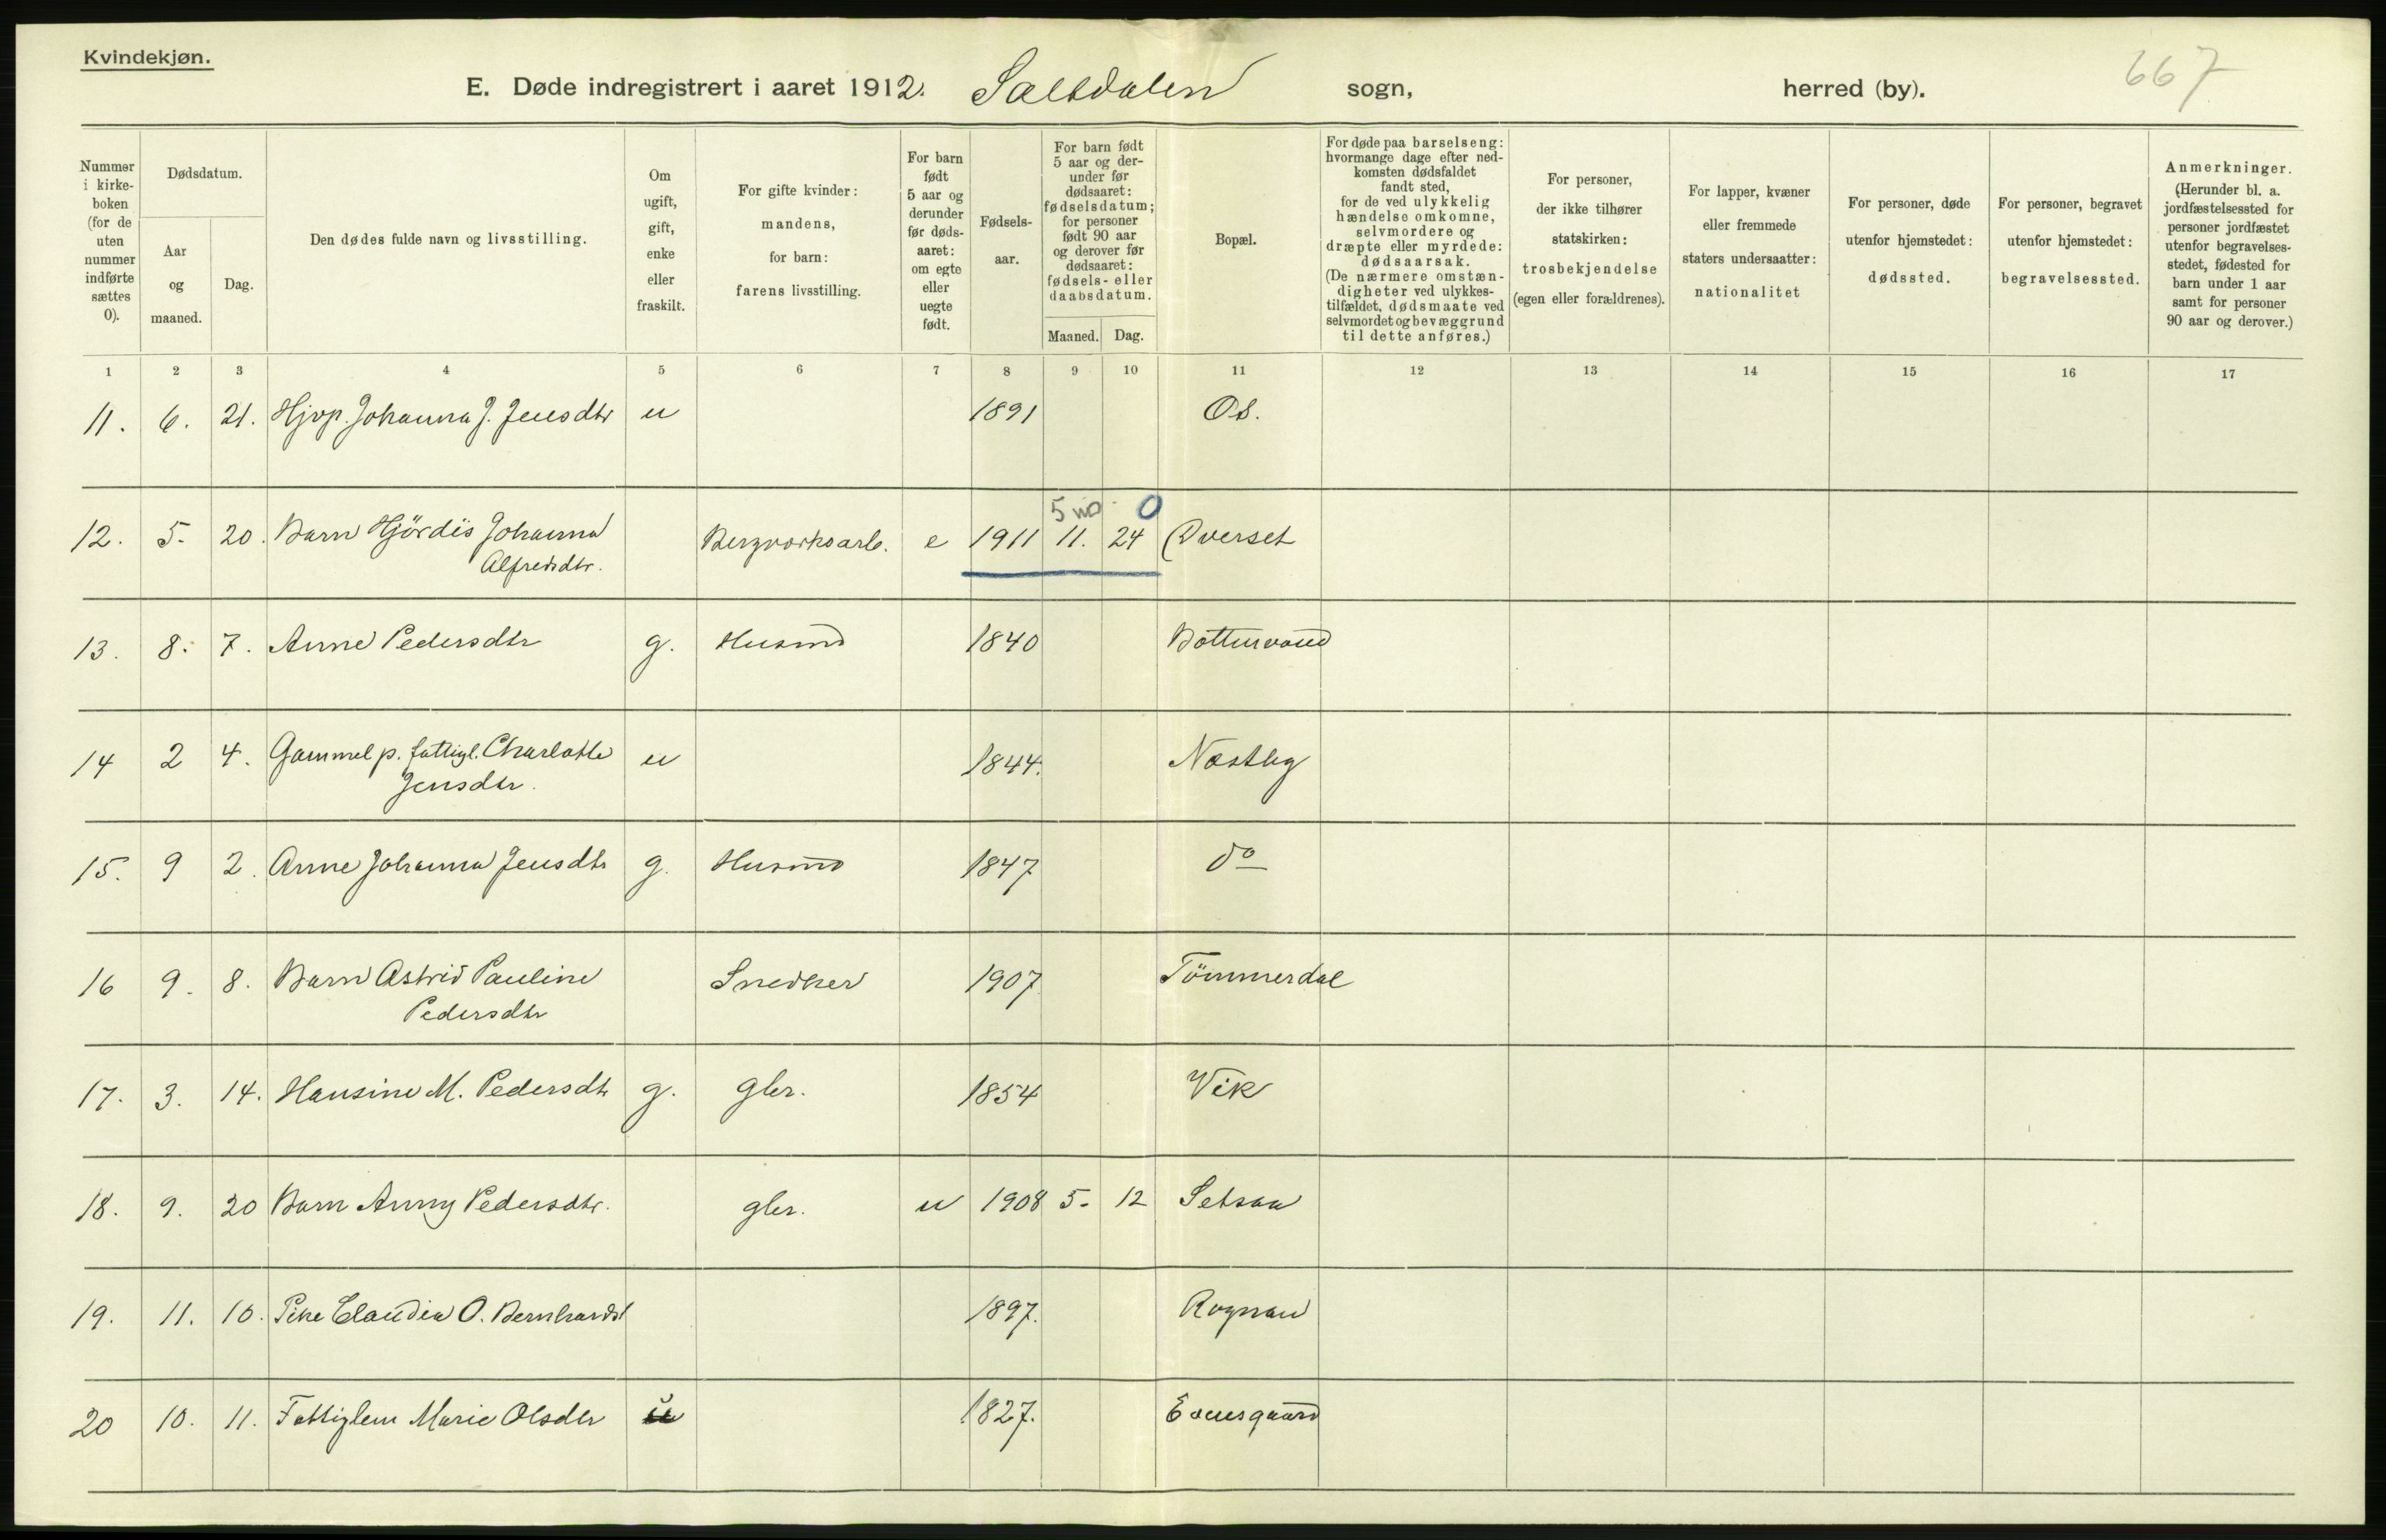 Kvindekjøn.
E. Døde indregistrert i aaret 1912. Saltdalen sogn, herred (by). 667
Nummer i kirke- boken (for de uten nummer indførte sættes 0).
Dødsdatum.
Aar og maaned.
Dag.
Den dødes fulde navn og livsstilling.
Om ugift, gift, enke eller fraskilt.
For gifte kvinder: mandens, for barn: farens livsstilling.
For barn født 5 aar og derunder før døds- aaret: om egte eller uegte født.
Fødsels- aar.
For barn født 5 aar og der- under før dødsaaret: fødselsdatum; for personer født 90 aar og derover før dødsaaret: fødsels- eller daabsdatum.
Maaned. Dag.
Bopæl.
For døde paa barselseng: hvormange dage efter ned- komsten dødsfaldet fandt sted, for de ved ulykkelig hændelse omkomne, selvmordere og dræpte eller myrdede: dødsaarsak. (De nærmere omstæn- digheter ved ulykkes- tilfældet, dødsmaate ved selvmordet og bevæggrund til dette anføres.)
For personer, der ikke tilhører statskirken: trosbekjendelse (egen eller forældrenes).
For lapper, kvæner eller fremmede staters undersaatter: nationalitet
For personer, døde utenfor hjemstedet: dødssted.
For personer, begravet utenfor hjemstedet: begravelsessted.
Anmerkninger. (Herunder bl. a. jordfæstelsessted for personer jordfæstet utenfor begravelses- stedet, fødested for barn under 1 aar samt for personer 90 aar og derover.)
1 2 3 4 5 6 7 8 9 10 11 12 13 14 15 16 17
11. 6. 21. Hjvp. Johanna J. Jensdtr u 1891 Os.
5 0
12. 5. 20. Barn Hjördis Johanna Bergværksarb. e 1911 11. 24 Överset
Alfredsdtr.
13. 8. 7. Anne Pedersdtr g. Husmd 1840
14 2 4. Gammel p. fattigl. Charlotte u 1844. Næstby
Jensdtr.
15. 9 2. Anne Johanna Jensdtr g. Husmd 1847 do
16 9. 8. Barn Astrid Pauline Snedker 1907 Tömmerdal
Pedersdtr
17. 3. 14. Hansine M. Pedersdtr g. gbr. 1854 Vik
18. 9. 20 Barn Anny Pedersdtr. gbr. u 1908 5. 12 Setsaa
19. 11. 10. Pike Claudia O. Bernhardsd 1897. Rognan
20 10. 11. Fattiglem Marie Olsdtr u 1827. Evensgaard